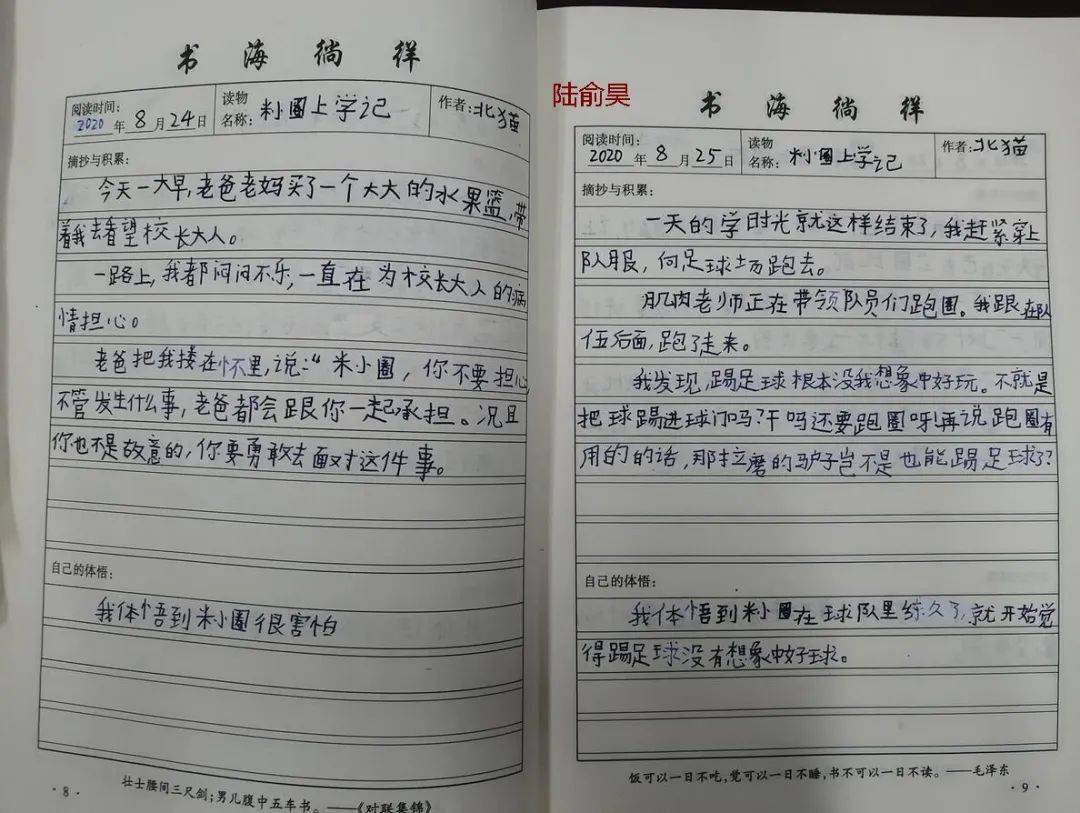 书海徜徉
阅读时间:
2020年8月24日
读物
名称:米小圈上学记
作者:北猫
摘抄与积累:
今天一大早,老爸老妈买了一个大大的水果篮,带
着我去看望校长大人。
一路上,我都闷闷不乐,一直在为校长大人的病
情担心。
老爸把我搂在怀里,说:“米小圈,你不要担心
不管发生什么事,老爸都会跟你一起承担。况且
你也不是故意的,你要勇敢去面对这件事。
自己的体悟:
我体悟到米小圈很害怕
壮士腰间三尺剑;男儿腹中五车书。——《对联集锦》
·8·
陆俞昊
书海徜徉
阅读时间:
2020年8月25日
读物
名称:米小圈上学记
作者:北猫
摘抄与积累:
一天的学时光就这样结束了,我赶紧穿上
队服,向足球场跑去。
肌肉老师正在带领队员们跑圈。我跟在队
伍后面,跑了走来。
我发现,踢足球根本没我想象中好玩。不就是
把球踢进球门吗?干吗还要跑圈呀!再说跑圈有
用的的话,那拉磨的驴子岂不是也能踢足球了?
自己的体悟:
我体悟到米小圈在球队里练久了,就开始觉
得踢足球没有想象中好球。
饭可以一日不吃,觉可以一日不睡,书不可以一日不读。——毛泽东
·9·